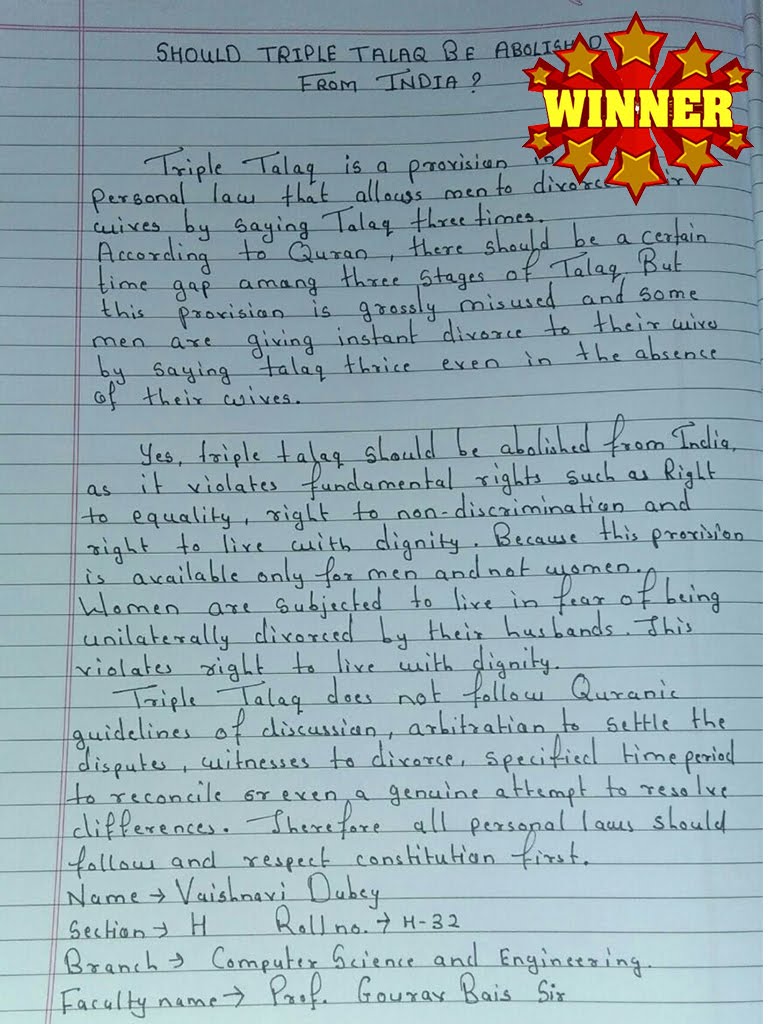 SHOULD TRIPLE TALAQ BE ABOLISHED
FROM INDIA?
WINNER
Triple Talaq is a provision in
personal law that allows men to divorce
wives by saying Talaq three times.
According to Quran, there should be a certain
time gap among three stages of Talaq. But
this provision is grossly misused and some
men are giving instant divorce to their wives
by saying talaq thrice even in the absence
of their wives.
Yes, triple talaq should be abolished from India,
as it violates fundamental rights such as Right
to equality, right to non-discrimination and
right to live with dignity. Because this provision
is available only for men and not women.
Women are subjected to live in fear of being
unilaterally divorced by their husbands. This
violates right to live with dignity.
Triple Talaq does not follow Quranic
guidelines of discussion, arbitration to settle the
disputes, witnesses to divorce, specified time period
to reconcile or even a genuine attempt to resolve
differences. Therefore all personal laws should
follow and respect constitution first.
Name → Vaishnavi Dubey
Section → H Roll no. → H-32
Branch → Computer Science and Engineering.
Faculty name → Prof. Gourav Bais Sir